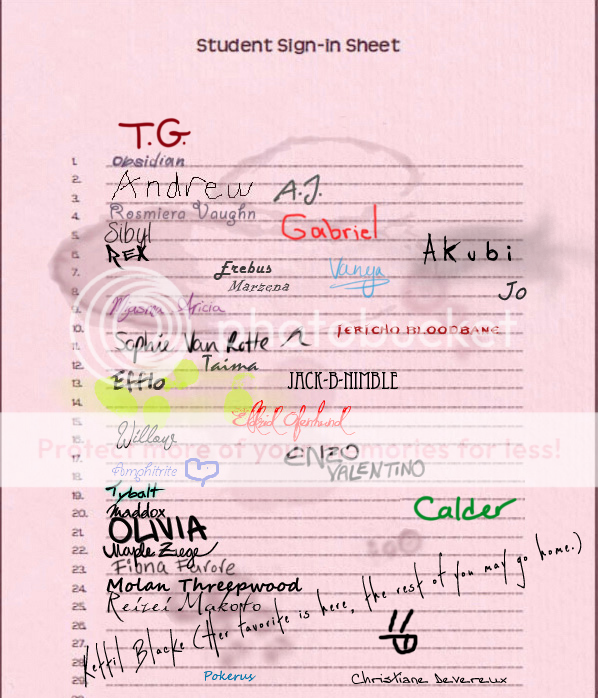 Student Sign-In Sheet
T.G.
1. Obsidian
2.
3. Andrew A.J.
4. Rosmiera Vaughn Gabriel
5. Sibyl
6. REX Akubi
7. Erebus Vanya
8. Marzena Jo
9. Aricia
10. JERICHO BLOODBANE
11. Sophie Van Rotte
12. Taima
13. Efflo JACK-B-NIMBLE
14.
15.
photobucket
Protect more of your memories for less!
16. Willow ENZO
17. Amphitrite VALENTINO
18.
19. Tybalt
20. Maddox Calder
21. OLIVIA
22. Maple Ziege
23. Fiona Furore
24. Molan Threepwood
25. Reizei Makoto
26. Keffil Blacke (Her favorite is here, the rest of you may go home.)
27.
28. Pokerus
29. Christiane Devereux